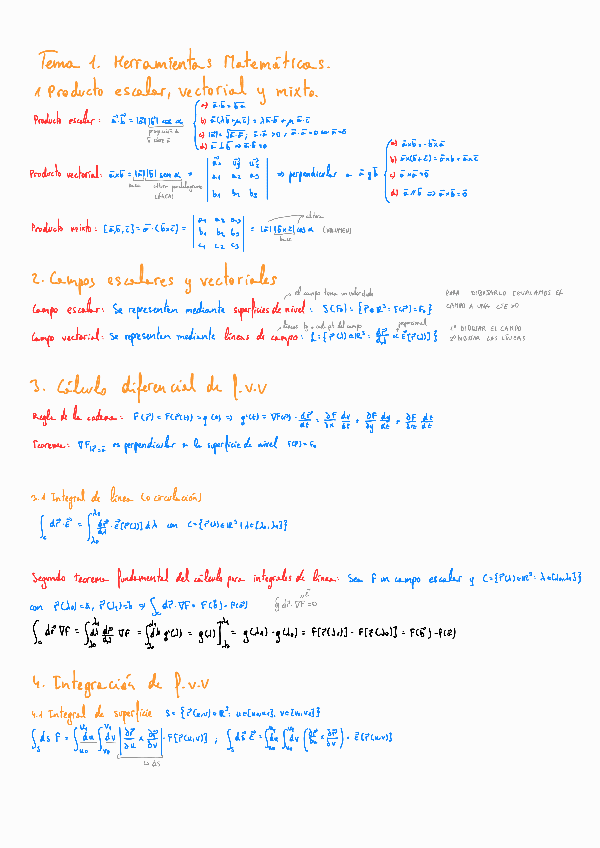 Tema 1. Herramientas Matemáticas.
1 Producto escalar, vectorial y mixto.
Producto escalar: a⃗·b⃗ = |a⃗||b⃗| cos α
proyección a⃗ sobre b⃗
a) a⃗·b⃗ = b⃗·a⃗
b) a⃗(λb⃗+μc⃗) = λa⃗·b⃗ + μa⃗·c⃗
c) |a⃗| = √a⃗·a⃗ ; a⃗·a⃗ ≥ 0 , a⃗·a⃗ = 0 ⇔ a⃗ = 0
d) a⃗ ⊥ b⃗ ⇒ a⃗·b⃗ = 0
Producto vectorial: a⃗×b⃗ = |a⃗||b⃗| sen α =
base altura paralelogramo
(ÁREA)
a1 a2 a3
b1 b2 b3
⇒ perpendicular a a⃗ y b⃗
a) a⃗×b⃗ = -b⃗×a⃗
b) a⃗×(b⃗+c⃗) = a⃗×b⃗ + a⃗×c⃗
c) a⃗×a⃗ = 0
d) a⃗ ∥ b⃗ ⇒ a⃗×b⃗ = 0
Producto mixto: [a⃗,b⃗,c⃗] = a⃗·(b⃗×c⃗) =
a1 a2 a3
b1 b2 b3
c1 c2 c3
= |a⃗||b⃗×c⃗| cos α (VOLUMEN)
altura
base
2. Campos escalares y vectoriales
el campo toma un valor dado
Campo escalar: Se representan mediante superficies de nivel: S(F₀) = {r⃗ ∈ ℝ³ : F(r⃗) = F₀}
PARA DIBUJARLO IGUALAMOS EL
CAMPO A UNA CTE > 0
líneas tg a cada pto del campo
proporcional
Campo vectorial: Se representan mediante líneas de campo: L = {r⃗(λ) ∈ ℝ³ : dr⃗/dλ ∝ E⃗[r⃗(λ)]}
1º DIBUJAR EL CAMPO
2º DIBUJAR LAS LÍNEAS
3. Cálculo diferencial de f.v.v
Regla de la cadena: F(r⃗) = F(r⃗(t)) = g(t) ⇒ g'(t) = ∇F(r⃗) · dr⃗/dt = ∂F/∂x dx/dt + ∂F/∂y dy/dt + ∂F/∂z dz/dt
Teorema: ∇F|r⃗=a⃗ es perpendicular a la superficie de nivel F(r⃗) = F₀
3.1 Integral de línea (o circulación)
∫c dr⃗·E⃗ = ∫λ₀^λ₁ dr⃗/dλ · E⃗[r⃗(λ)] dλ con C = {r⃗(λ) ∈ ℝ³ : λ ∈ [λ₀,λ₁]}
Segundo teorema fundamental del cálculo para integrales de línea: Sea F un campo escalar y C = {r⃗(λ) ∈ ℝ³ : λ ∈ [λ₀,λ₁]}
con r⃗(λ₀) = a⃗, r⃗(λ₁) = b⃗ ⇒ ∫c dr⃗·∇F = F(b⃗) - F(a⃗)
∮ dr⃗·∇F = 0
∫c dr⃗ ∇F = ∫λ₀^λ₁ dλ dr⃗/dλ ∇F = ∫λ₀^λ₁ dλ g'(λ) = g(λ)]λ₀^λ₁ = g(λ₁) - g(λ₀) = F[r⃗(λ₁)] - F[r⃗(λ₀)] = F(b⃗) - F(a⃗)
4. Integración de f.v.v
4.1 Integral de superficie S = {r⃗(u,v) ∈ ℝ³ : u ∈ [u₀,u₁], v ∈ [v₀,v₁]}
∫s ds F = ∫u₀^u₁ du ∫v₀^v₁ dv |∂r⃗/∂u × ∂r⃗/∂v| · F[r⃗(u,v)] ; ∫s ds⃗ E⃗ = ∫u₀^u₁ du ∫v₀^v₁ dv (∂r⃗/∂u × ∂r⃗/∂v) · E⃗[r⃗(u,v)]
↳ ds